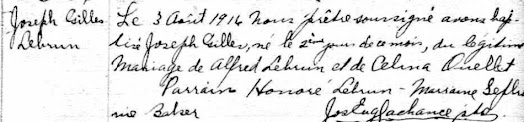 Joseph Gilles
Lebrun
Le 3 Août 1914 Nous prêtre soussigné avons bap
tisé Joseph Gilles, né le 2ème jour de ce mois, du légitime
Mariage de Alfred Lebrun et de Celina Ouellet
Parrain Honoré Lebrun - Marraine
Jos Eug Lachance ptre